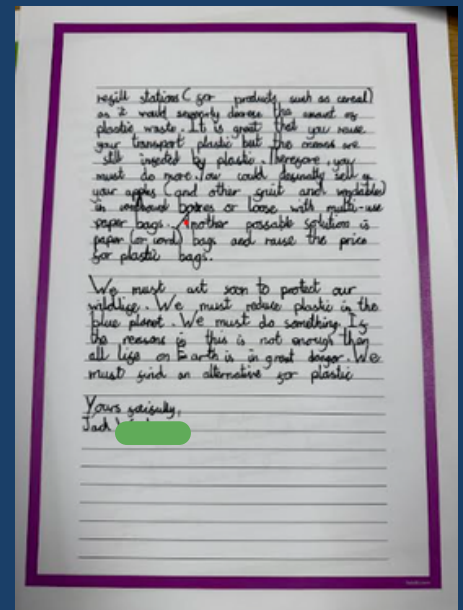 refill stations (for products such as cereal)
as it would severely decrease the amount of
plastic waste. It is great that you reuse
your transport plastic but the oceans are
still infected by plastic. Therefore, you
must do more. You could definatly sell
your apples (and other fruit and vegtables)
in boxes or loose with multi-use
paper bags. Another possable solution is
paper (or) bags and raise the price
for plastic bags.
We must act soon to protect our
wildlife. We must reduce plastic in the
blue planet. We must do something. If
the reasons is this is not enough then
all life on Earth is in great danger. We
must find an alternative for plastic
Yours
Jack